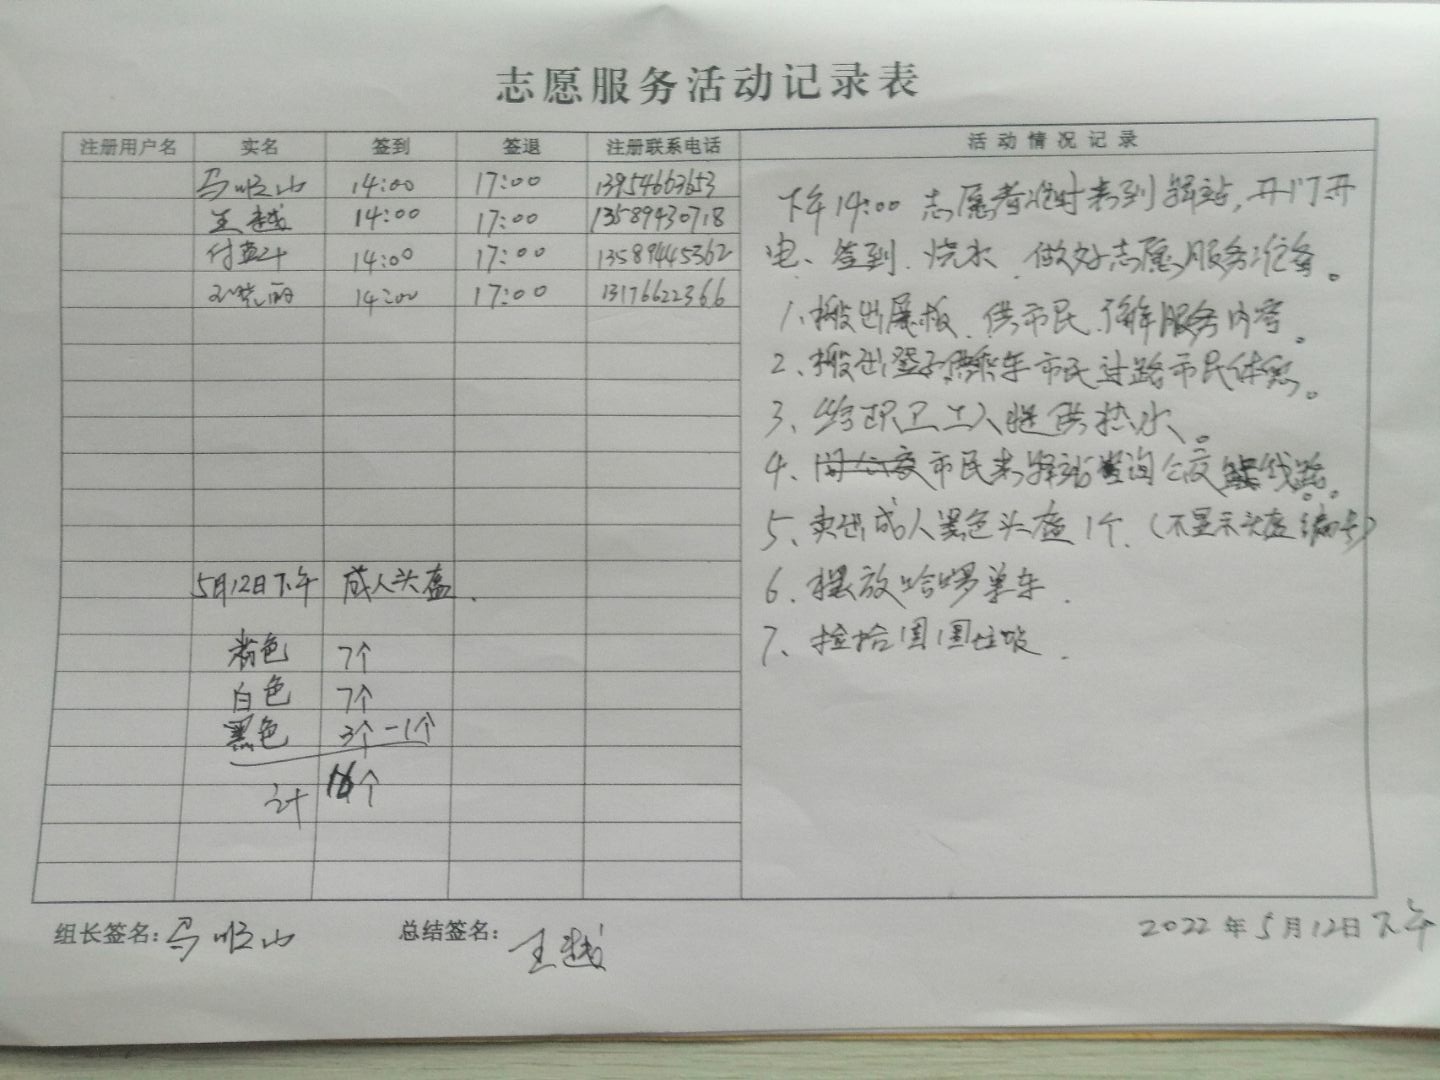 志愿服务活动记录表
注册用户名 实名 签到 签退 注册联系电话
马顺山 14:00 17:00 13954663653
王越 14:00 17:00 13589430718
付 14:00 17:00 13589445362
14:00 17:00 13176622366
5月12日下午 成人头盔.
粉色 7个
白色 7个
黑色 3个-1个
计 16个
活动情况记录
下午14:00 志愿者准时来到驿站,开门开
电、签到、烧水、做好志愿服务准备。
1、搬出展板、供市民了解服务内容。
2、搬出凳子供乘车市民过路市民休息。
3、给环卫工人提供热水。
4、市民来驿站查询公交线路。
5、卖出成人黑色头盔1个.(不显示头盔编号)
6、摆放哈啰单车.
7、捡拾周围垃圾.
组长签名:马顺山 总结签名:王越
2022年5月12日下午